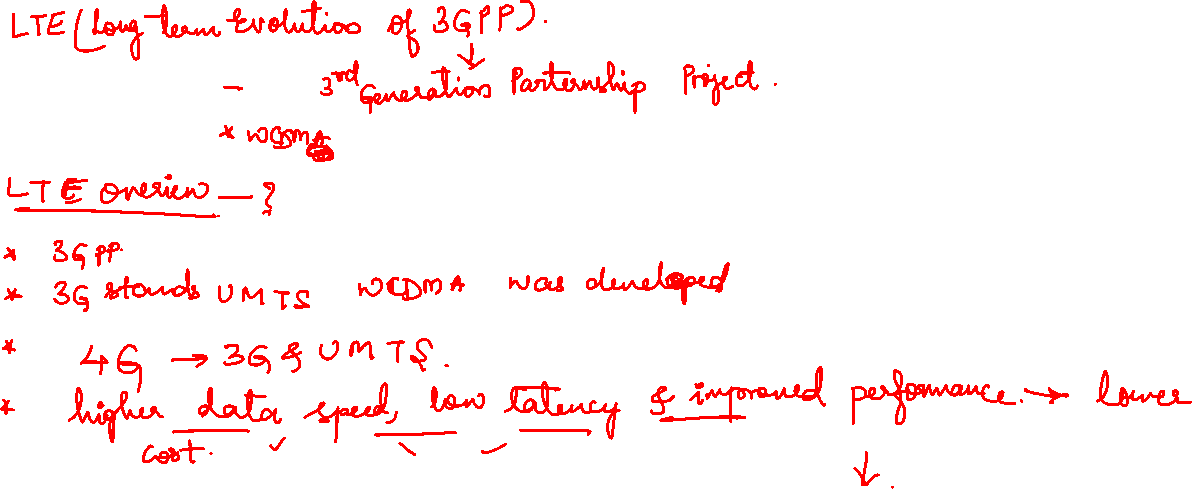 LTE (Long term Evolution of 3GPP).
↓
- 3rd Generation Parternship Project.
* WCDMA
LTE overview — ?
* 3GPP.
* 3G stands UMTS WCDMA was developed
* 4G → 3G & UMTS.
* higher data speed, low latency & improved performance. → lower
cost. ✓ ✓
↓.